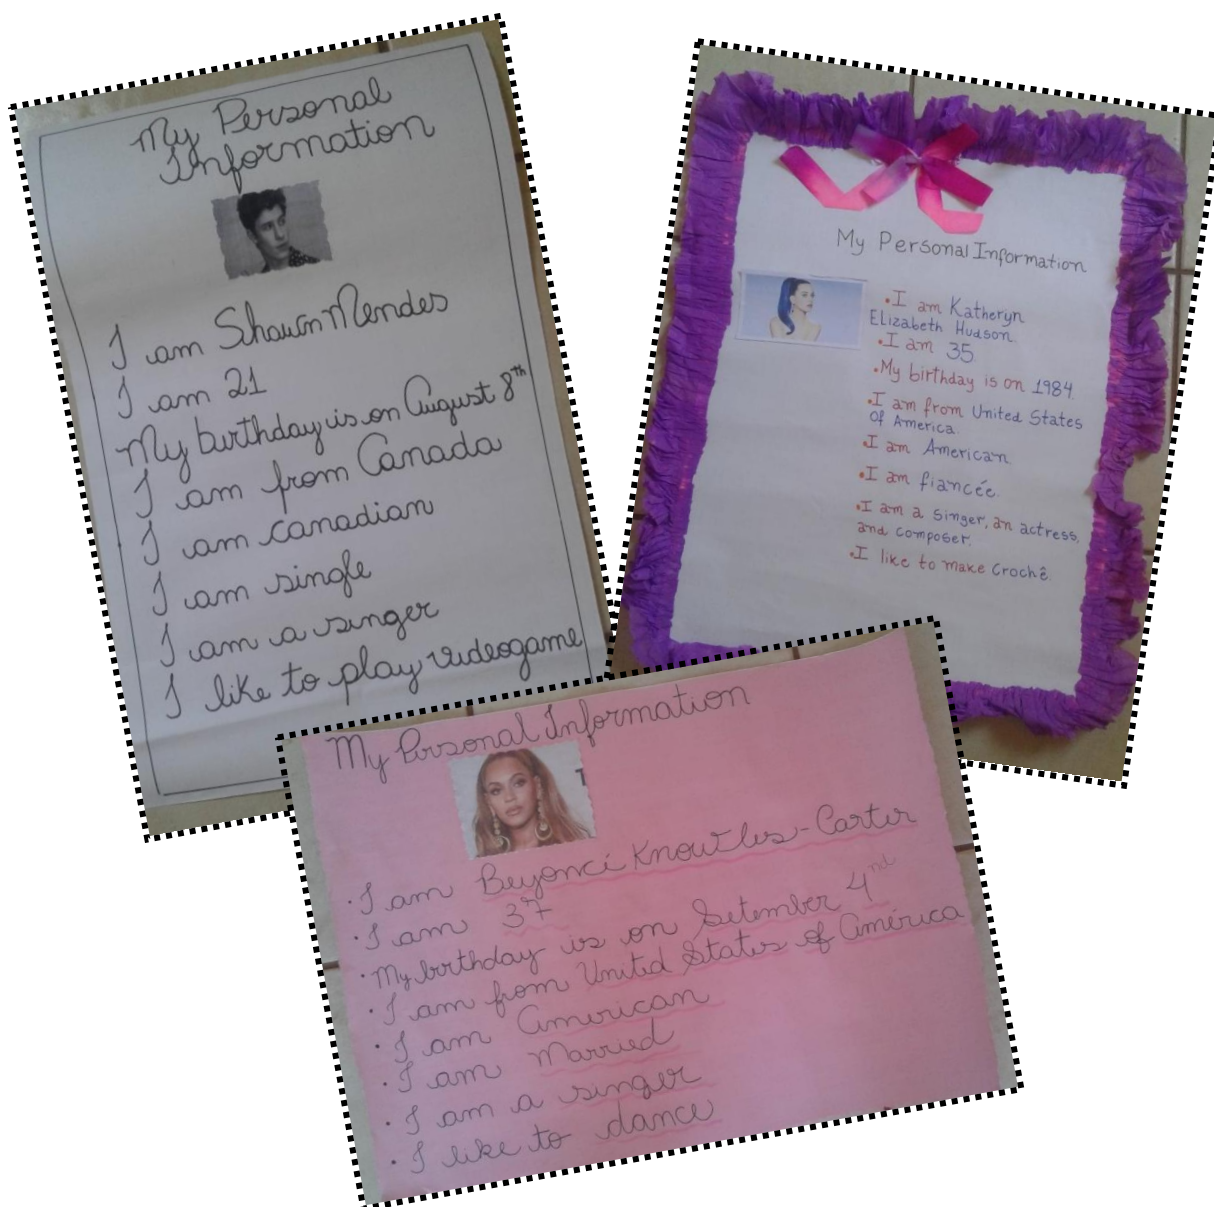 My Personal
Information
I am Shawn Mendes
I am 21
My birthday is on August 8th
I am from Canada
I am canadian
I am single
I am a singer
I like to play videogame
My Personal Information
•I am Katheryn
Elizabeth Hudson.
•I am 35
•My birthday is on 1984.
•I am from United States
of America.
•I am American
•I am fiancée.
•I am a singer, an actress,
and composer.
•I like to make crochê.
My Personal Information
•I am Beyoncé Knowles-Carter
•I am 37
•My birthday is on Setember 4nd
•I am from United States of América
•I am American
•I am Married
•I am a singer
•I like to dance